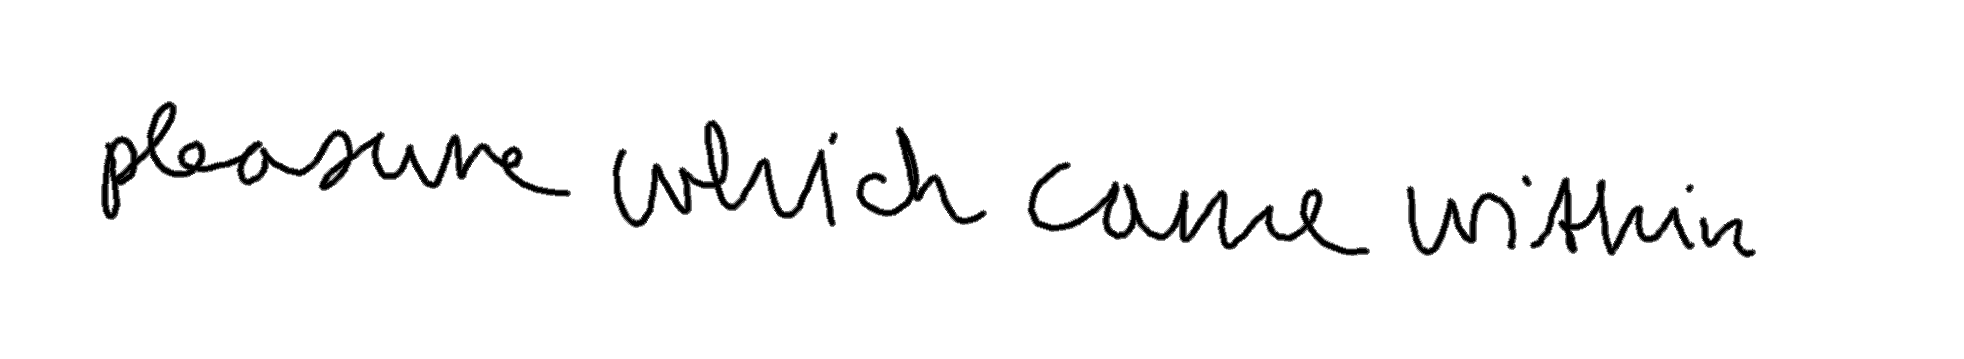 pleasure which came within